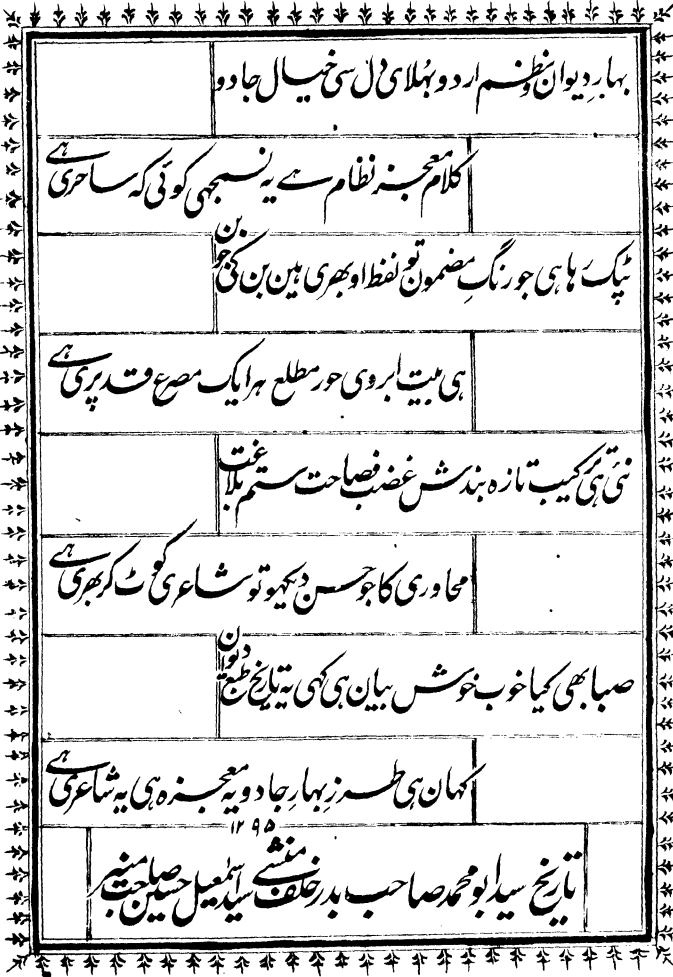 بہار دیوان و نظم اردو بھلای دل سی خیال جادو
کلام معجز نظام ہے یہ نسمجھی کوئی کہ ساحری ہے
ٹپک رہا ہی جو رنگِ مضمون تو لفظ اوبھری ہین بن کی جوبن
ہی بیت ابروی حور مطلع ہر ایک مصرع قد پری ہے
نئی ہی ترکیب تازہ بندش غضب فصاحت ستم بلاغت
محاوری کا جو حسن دیکھو تو شاعری کوٹ کر بھری ہے
صبا بھی کیا خوب خوش بیان ہی کہی یہ تاریخ طبع دیوان
کہان ہی طرز بہارِ جادو یہ معجزہ ہی یہ شاعری ہے
۱۲۹۵
تاریخ سید ابو محمد صاحب بدر خلف منشی سید اسمٰعیل حسین صاحب منیر